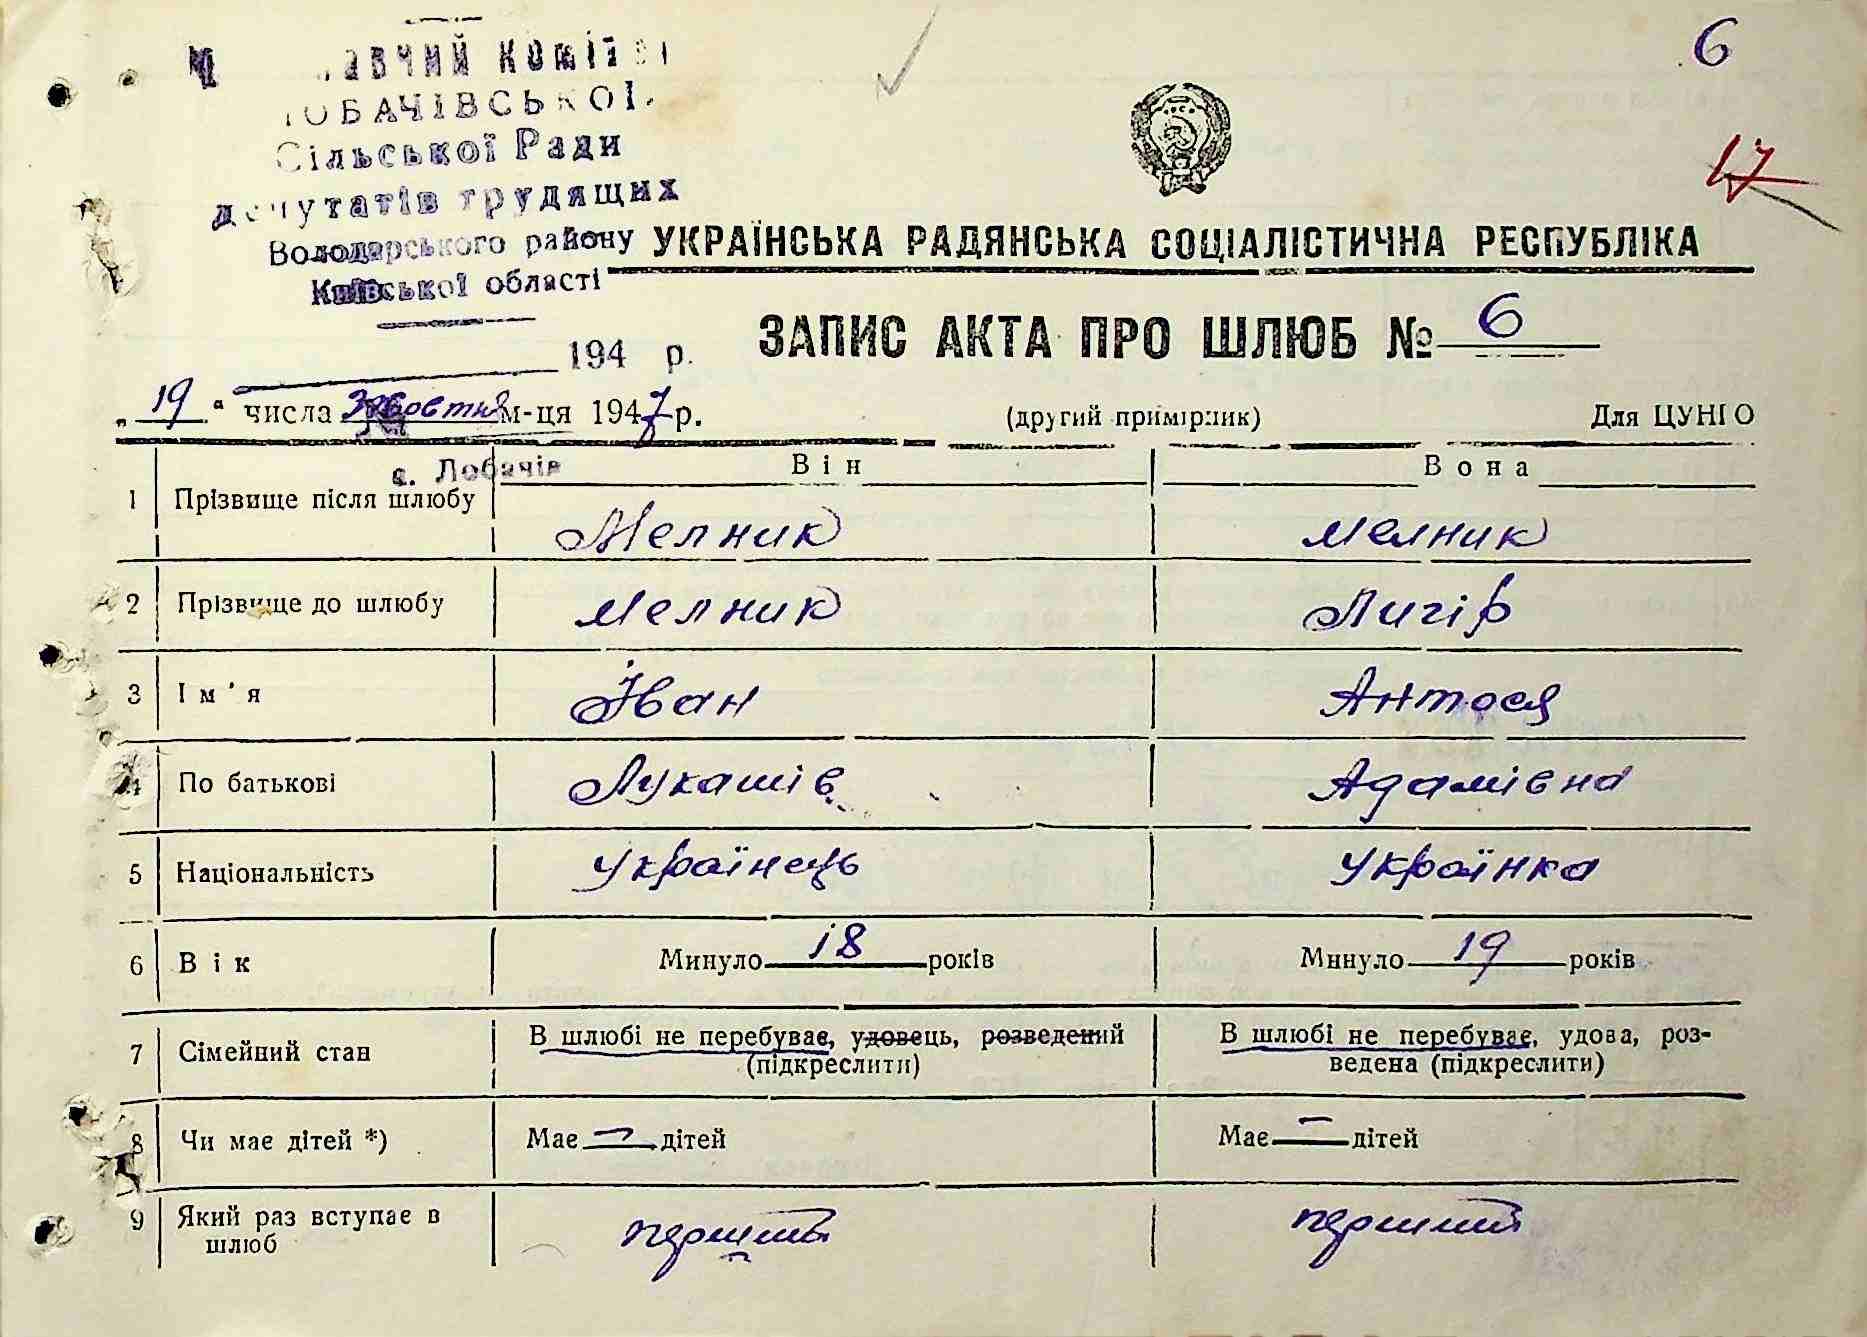 Виконавчий комітет
ЛОБАЧІВСЬКОЇ
Сільської Ради
депутатів трудящих
Володарського району
Київської області
6
17
УКРАЇНСЬКА РАДЯНСЬКА СОЦІАЛІСТИЧНА РЕСПУБЛІКА
ЗАПИС АКТА ПРО ШЛЮБ № 6
194 р.
„19“ числа Жовтня м-ця 1947 р.
(другий примірник) Для ЦУНГО
с. Лобачів
Він Вона
1 Прізвище після шлюбу Мелник Мелник
2 Прізвище до шлюбу Мелник Лигір
3 Ім'я Іван Антося
4 По батькові Лукашів Адамівна
5 Національність Українець Українка
6 Вік Минуло 18 років Минуло 19 років
7 Сімейний стан В шлюбі не перебуває, удовець, розведений (підкреслити) В шлюбі не перебуває, удова, роз-
ведена (підкреслити)
8 Чи має дітей *) Має — дітей Має — дітей
9 Який раз вступає в
шлюб перший перший